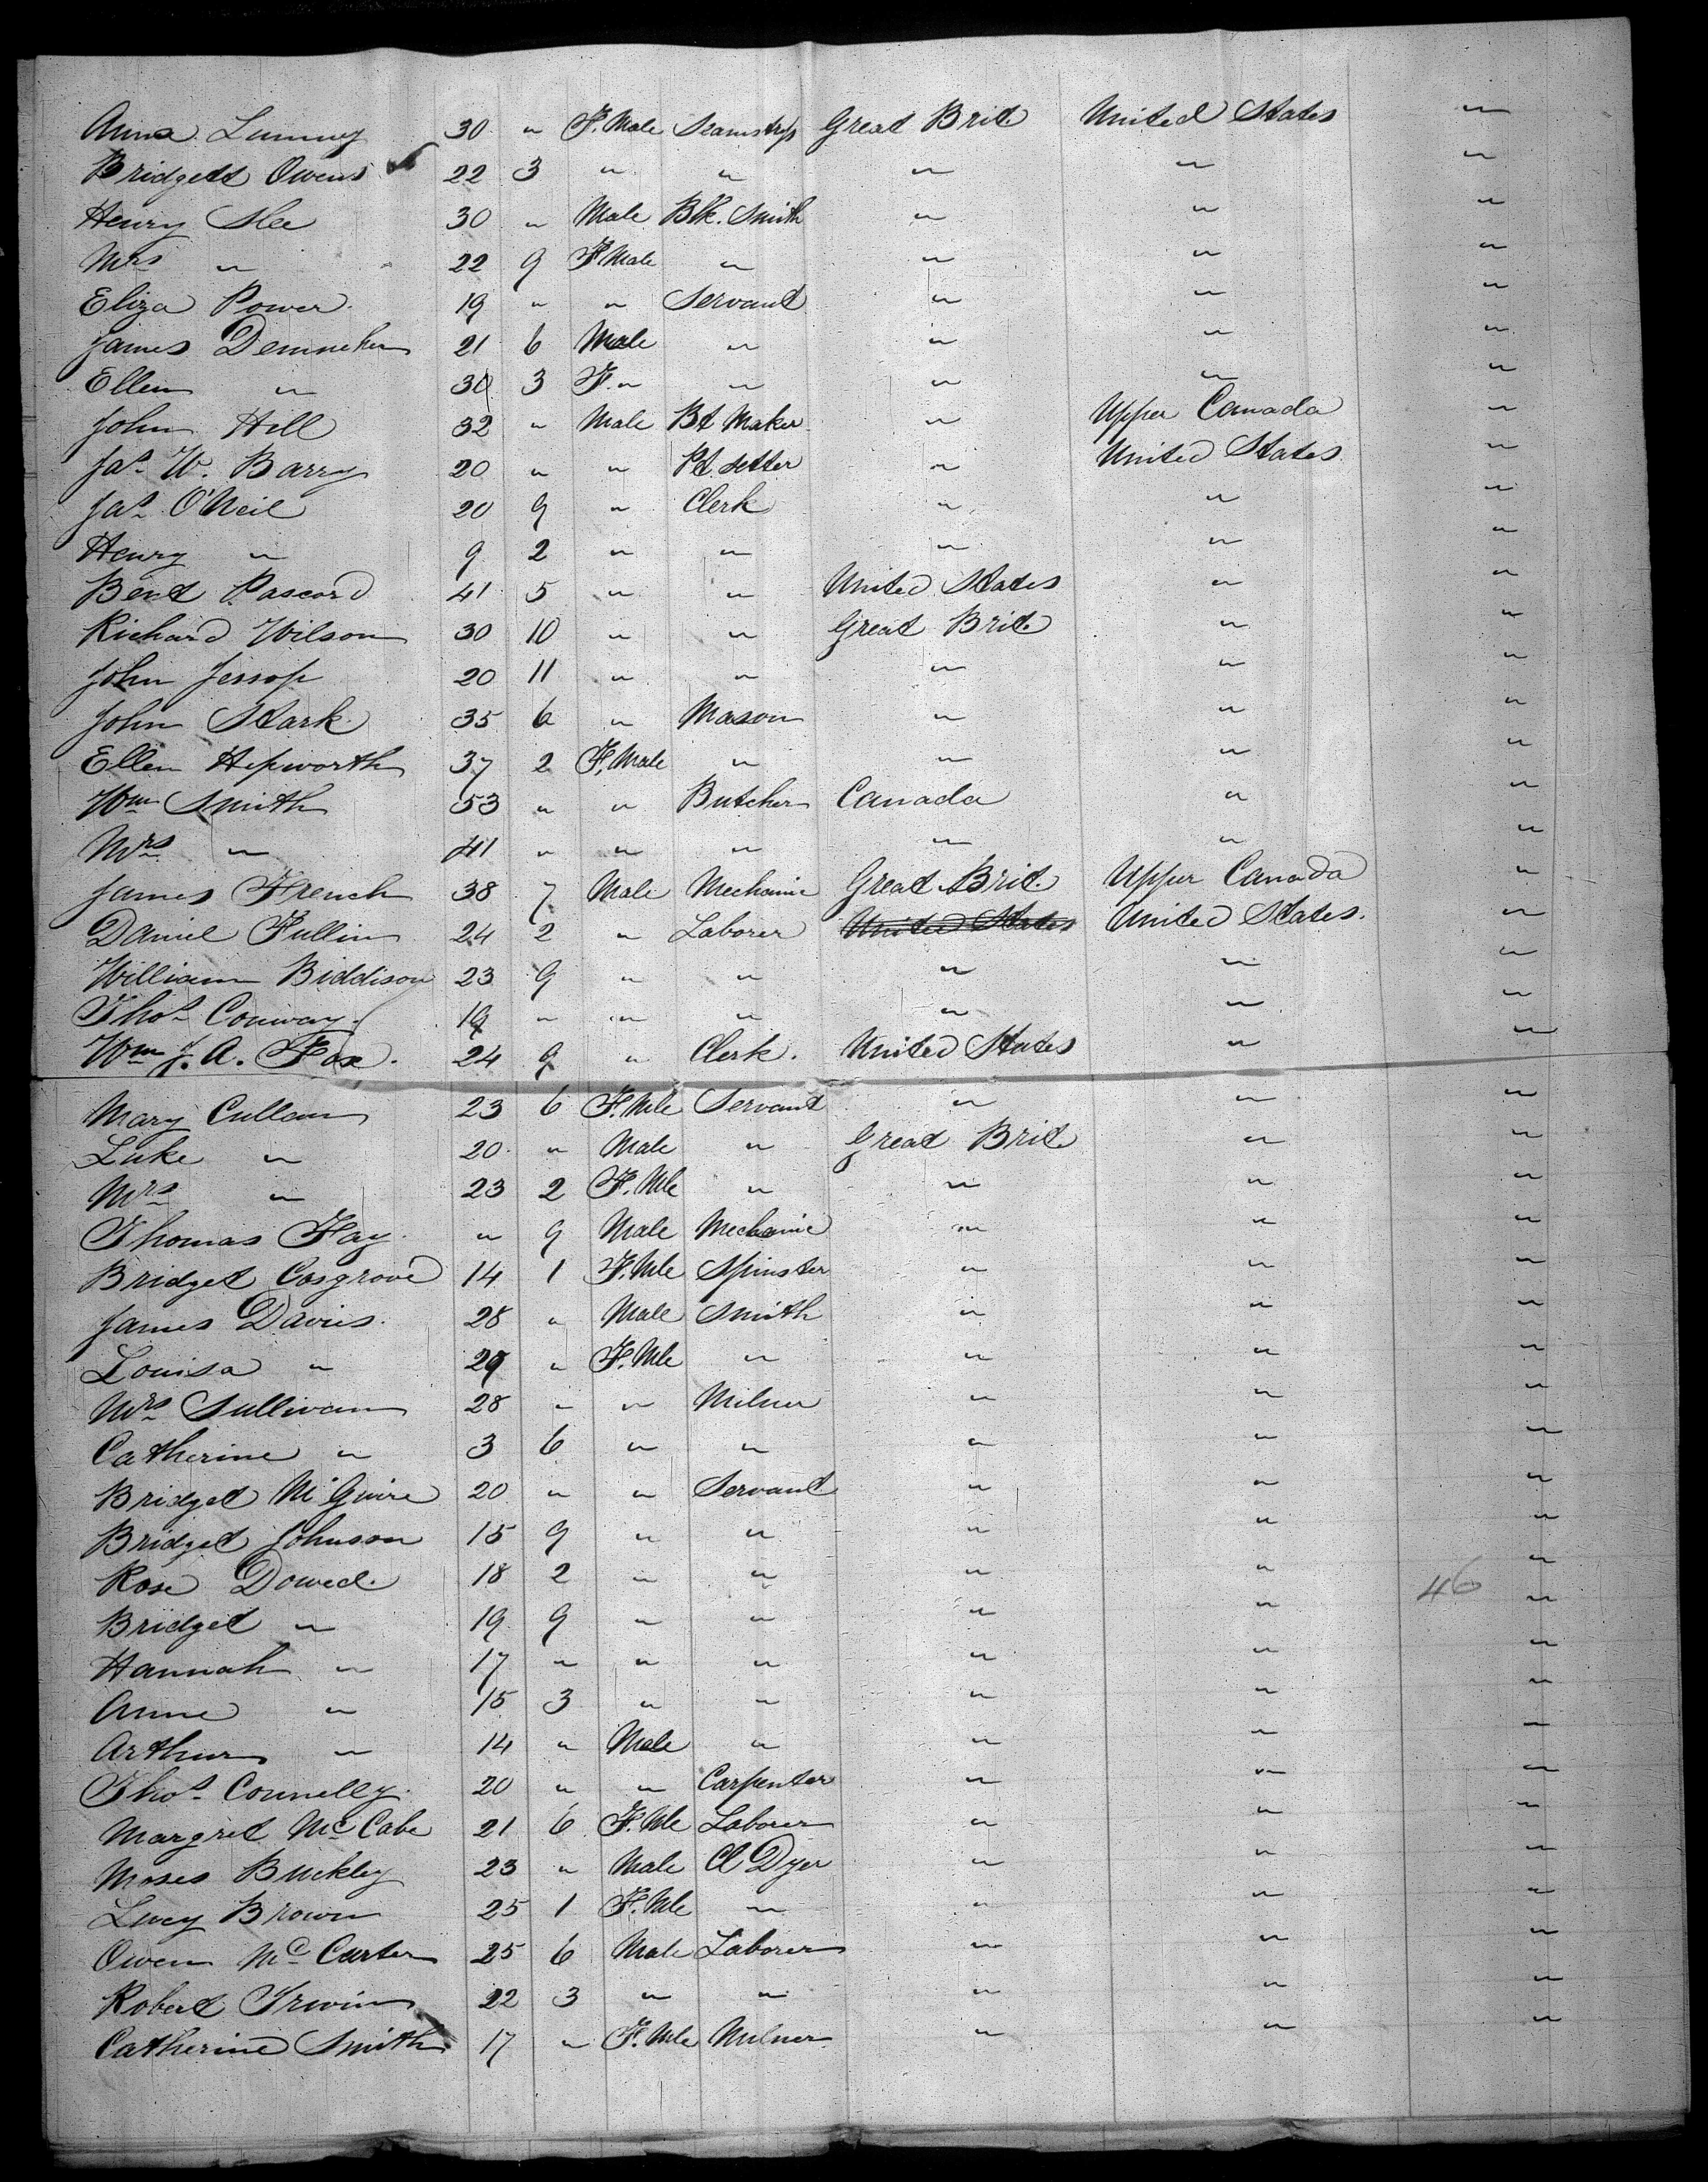 Anna Lumny 30 " F. Male Seamstress Great Brit United States "
Bridgett Owens 22 3 " " " " "
Henry Slee 30 " Male Blk. Smith " " "
Mrs " 22 9 F Male " " " "
Eliza Power 19 " " Servant " " "
James Denneher 21 6 Male " " " "
Ellen " 30 3 F. " " " " "
John Hill 32 " Male Bt Maker " Upper Canada "
Jas W. Barry 20 " " Pt Setter " United States "
Jas O'Neil 20 9 " Clerk " " "
Henry " 9 2 " " " " "
Bend Pascord 41 5 " " United States " "
Richard Wilson 30 10 " " Great Brit. " "
John Jessop 20 11 " " " " "
John Stark 35 6 " Mason " " "
Ellen Hepworth 37 2 F. Male " " " "
Wm Smith 53 " " Butcher Canada " "
Mrs " 41 " " " " " "
James French 38 7 Male Mechanic Great Brit. Upper Canada "
Daniel Fullin 24 2 " Laborer United States United States. "
William Biddison 23 9 " " " " "
Thos Conway. 19 " " " " " "
Wm J. A. Fox. 24 9 " Clerk. United States " "
Mary Cullen 23 6 F. Mle Servant " " "
Luke " 20 " Male " Great Brit " "
Mrs " 23 2 F. Mle " " " "
Thomas Fay " 9 Male Mechanic " " "
Bridget Cosgrove 14 1 F. Mle Spinster " " "
James Davies. 28 " Male Smith " " "
Louisa " 29 " F. Mle " " " "
Mrs Sullivan 28 " " Milner " " "
Catherine " 3 6 " " " " "
Bridget McGuire 20 " " Servant " " "
Bridget Johnson 15 9 " " " " "
Rose Dowed. 18 2 " " " " "
46
Bridget " 19 9 " " " " "
Hannah " 17 " " " " " "
Anne " 15 3 " " " " "
Arthur " 14 " Male " " " "
Thos Connelly. 20 " " Carpenter " " "
Margret McCabe 21 6 F. Mle Laborer " " "
Moses Buckley 23 " Male Cl Dyer " " "
Lucy Brown 25 1 F. Mle " " " "
Owen McCarter 25 6 Male Laborer " " "
Robert Irwin 22 3 " " " " "
Catherine Smith 17 " F. Mle Milner " " "